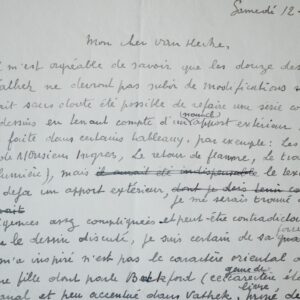 Samedi 12-
Mon cher Van Hecke,
m'est agréable de savoir que les douze des
Vathek ne devront pas subir de modifications
ait sans doute été possible de refaire une série
dessins en tenant compte d'un apport extérieur
(nouveau)
faite dans certains tableaux, par exemple: Les
de Monsieur Ingres, Le retour de flamme, Le
lumière), mais il aurait été indispensable le tex
déjà un apport extérieur, dont je dois tenir
je me serais trouvé
igences assez compliquées et peut-être contradictoi
force
le dessin discuté, je suis certain de sa
m'a inspiré n'est pas le caractère oriental
genre de
une fille dont parle Beckford (ce caractère
livre,
et peu accentué dans Vathek, prise de